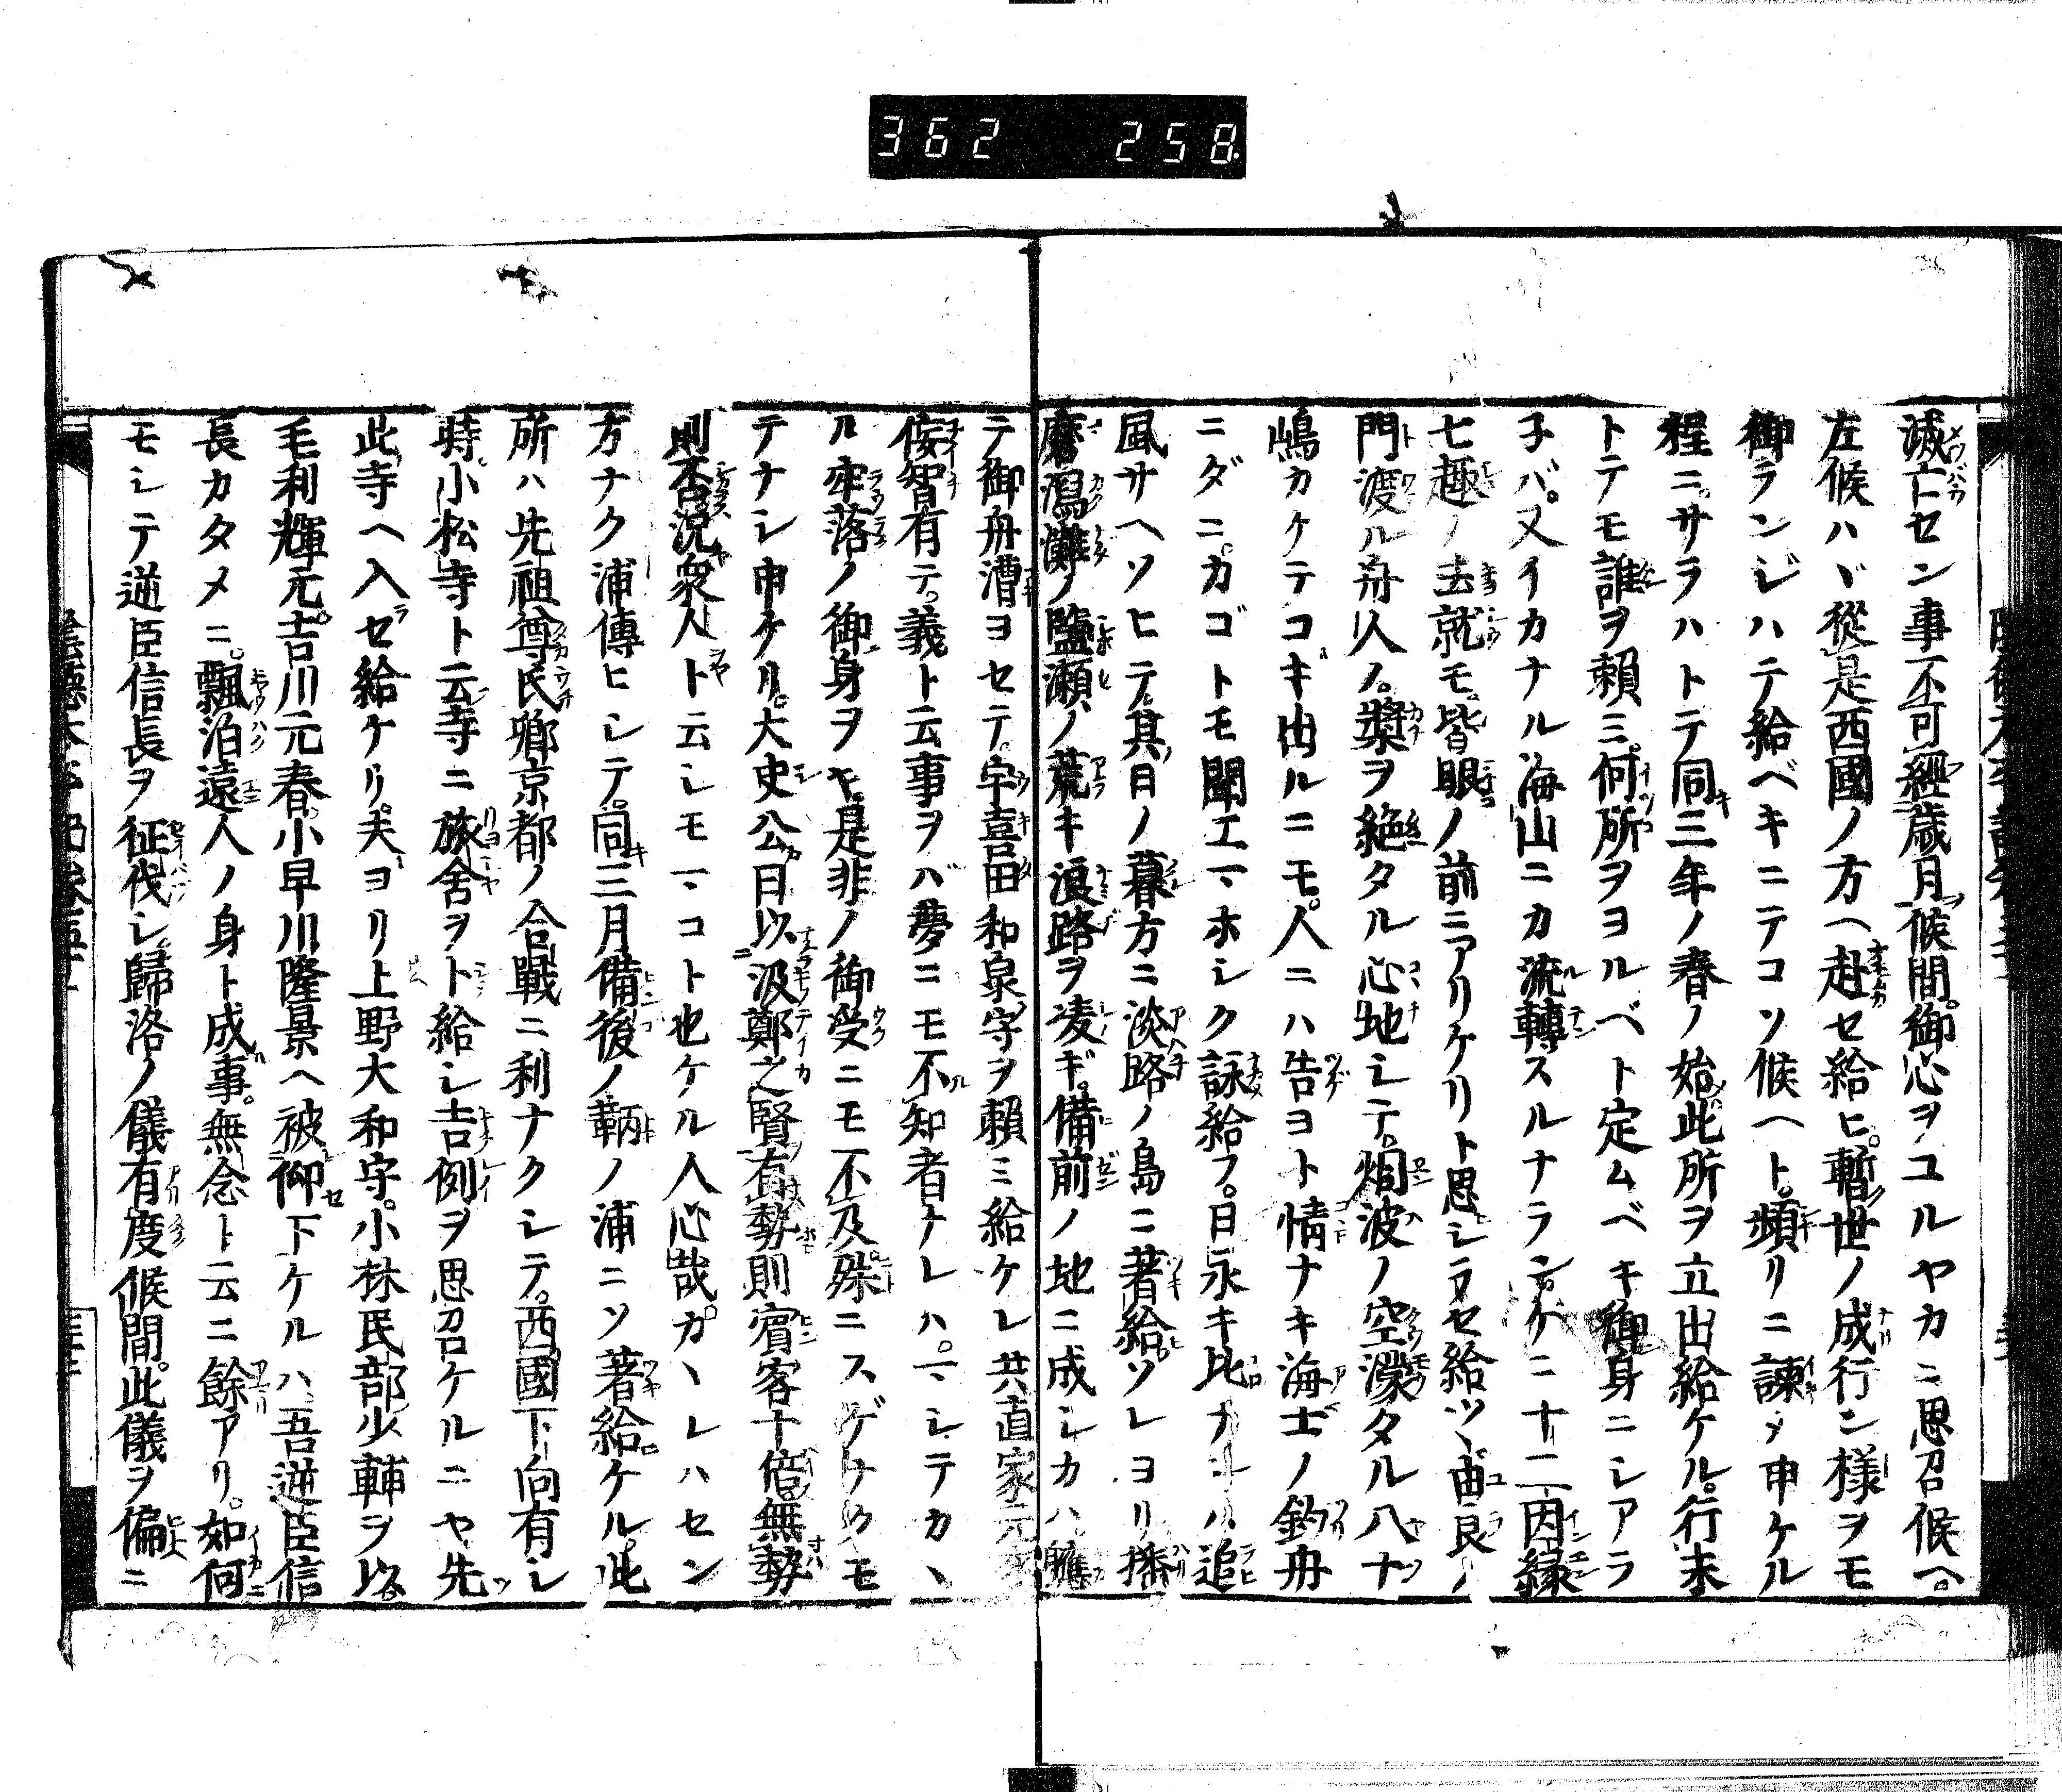 362 258
滅亡セン事不可經歳月候間。御心ヲユルヤカニ思召候へ。
左候ハヾ從是西國ノ方ヘ赴セ給ヒ。暫世ノ成行ン様ヲモ
御ランジハテ給ベキニテコソ候ヘト。頻リニ諫メ申ケル
程ニ。サラハトテ同三年ノ春ノ始此所ヲ立出給ケル。行末
トテモ誰ヲ頼ミ。何所ヲヨルベト定ムベキ御身ニシアラ
子バ。又イカナル海山ニカ流轉スルナランケニ十二因縁
七趣ノ去就モ。皆眼ノ前ニアリケリト思シラセ給ツヽ由良ノ
門渡ル舟人ノ。檝ヲ絶タル心地シテ。烟波ノ空濛タル八十
嶋カケテコギ出ルニモ。人ニハ告ヨト情ナキ海士ノ釣舟
ニダニ。カゴトモ聞エマホシク詠給フ。日永キ比ナレハ追
風サヘソヒテ。其日ノ暮方ニ淡路ノ島ニ著給。ソレヨリ播
磨潟灘ノ鹽瀬ノ荒キ浪路ヲ凌ギ。備前ノ地ニ成シカハ
テ御舟漕ヨセテ。宇喜田和泉守ヲ頼ミ給ケレ共直家元
侫智有テ。義ト云事ヲバ夢ニモ不知者ナレハ。マシテカヽ
ル牢落ノ御身ヲヤ。是非ノ御受ニモ不及。殊ニスゲナクモ
テナシ申ケリ。大史公曰以汲鄭之賢有勢則賓客十倍。無勢
則否況衆人ト云シモマコト也ケル人心哉。カヽレハセン
方ナク浦傳ヒシテ。同三月備後ノ鞆ノ浦ニソ著給ケル。此
所ハ先祖尊氏卿京都ノ合戰ニ利ナクシテ。西國下向有シ
時。小松寺ト云寺ニ旅舍ヲト給シ吉例ヲ思召ケルニヤ先
此寺ヘ入セ給ケリ。夫ヨリ上野大和守。小林民部少輔ヲ以
毛利輝元。吉川元春。小早川隆景ヘ被仰下ケルハ吾逆臣信
長カタメニ。飄泊遠人ノ身ト成事。無念ト云ニ餘アリ。如何
モシテ逆臣信長ヲ征伐シ。歸洛ノ儀有度候間。此儀ヲ偏ニ